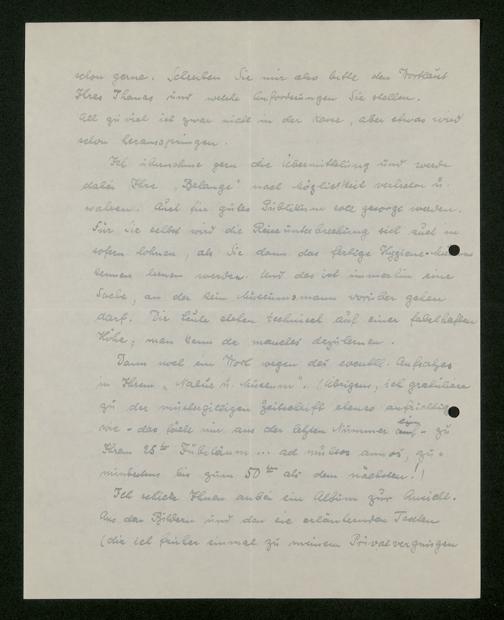 schon gerne. Schreiben Sie mir also bitte den Wortlaut
Ihres Themas und welche Anforderungen Sie stellen.
All zu viel ist zwar nicht in der Kasse, aber etwas wird
schon herausspringen.
Ich übernehme gern die Übermittelung und werde
dabei Ihre „Belange" nach Möglichkeit vertreten u.
wahren. Auch für gutes Publikum soll gesorgt werden.
Für Sie selbst wird die Reiseunterbrechung sich auch in
sofern lohnen, als Sie dann das fertige Hygiene-Museum
kennen lernen werden. Und das ist immerhin eine
Sache, an der kein Museumsmann vorüber gehen
darf. Die Leute stehen technisch auf einer fabelhaften
Höhe; man kann da manches dazulernen.
Dann noch ein Wort wegen des eventl. Aufsatzes
in Ihrem „Natur u. Museum". (Übrigens, ich gratuliere
zu der mustergiltigen Zeitschrift ebenso aufrichtig
wie - das fällt mir aus der letzten Nummer ein - zu
Ihrem 25ten Jubiläum ... ad multos annos, zu-
mindestens bis zum 50ten als dem nächsten!)
Ich schicke Ihnen anbei ein Album zur Ansicht.
Aus den Bildern und den sie erläuternden Texten
(die ich früher einmal zu meinem Privatvergnügen